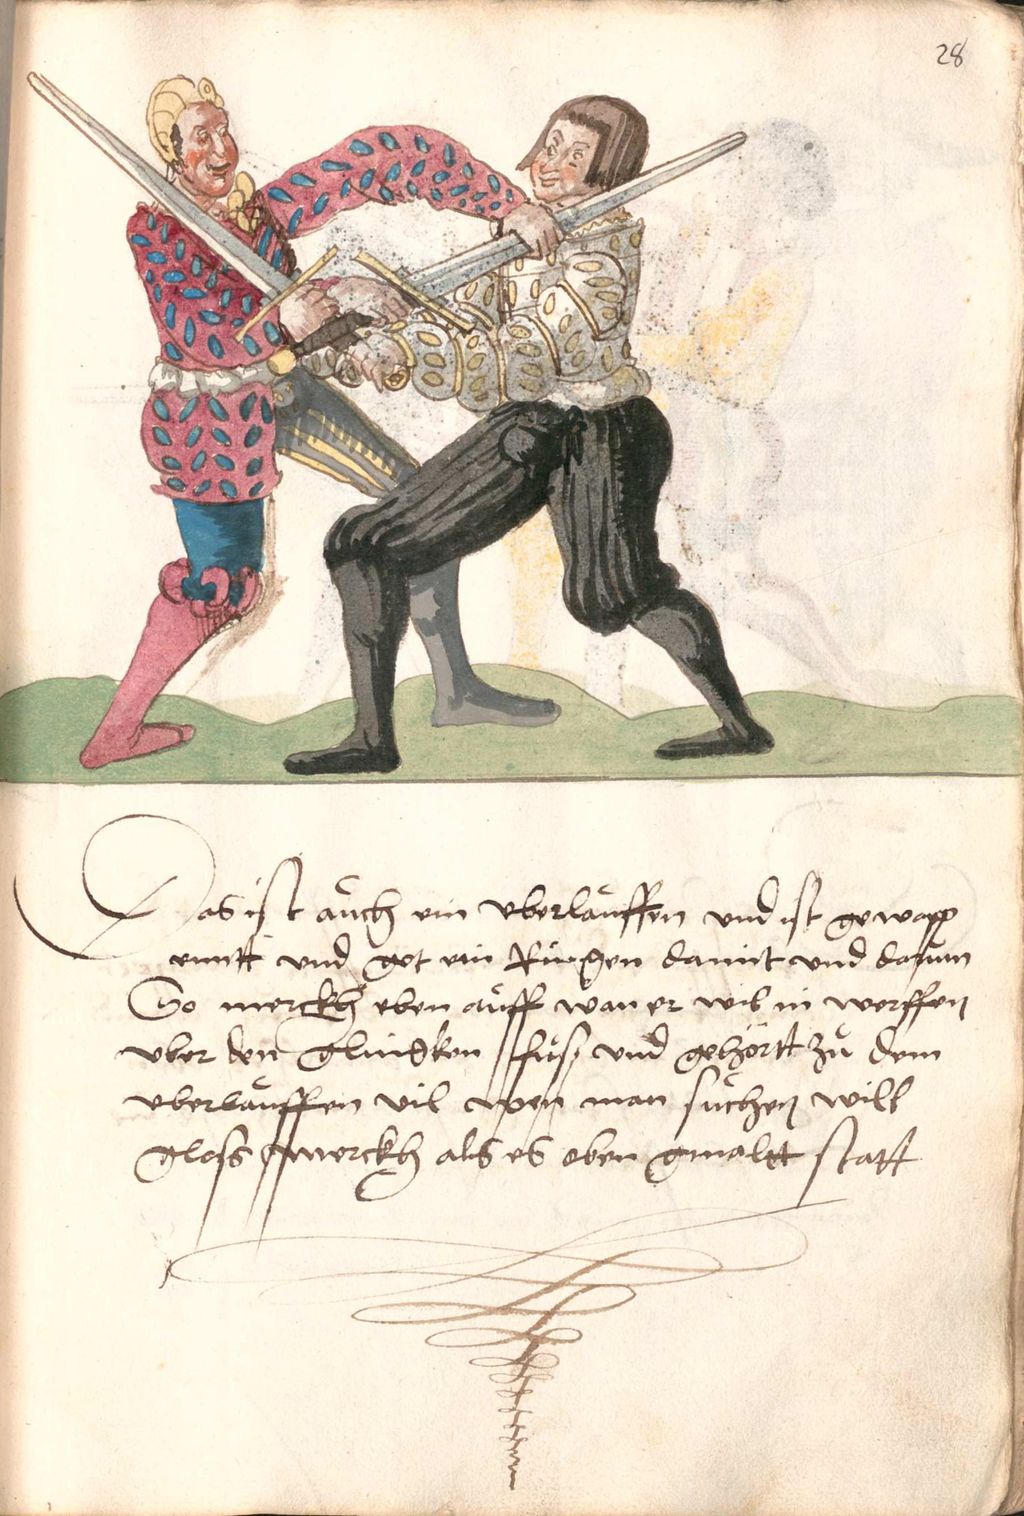 28
Das ist auch ein vberlauffen vnd ist gewapp
enntt vnd get ein Ringen damit vnd darum
So merckh eben auff wan er wil in werffen
vber den glincken fus vnd gehörtt zu dem
vberlauffen vil wen man suchen will
gloss merckh als es oben gmaltt statt